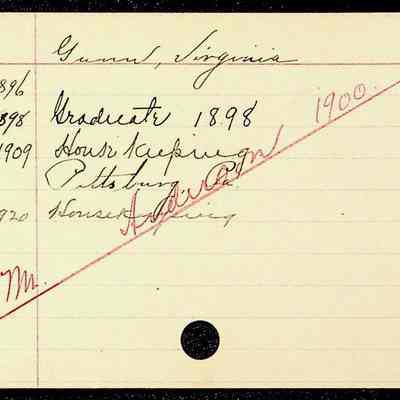 Gunn, Virginia
896
898 Graduate 1898
1909 House keeping
Pittsburg, Pa.
920 Housekeeping
Mr. Anderson 1900.